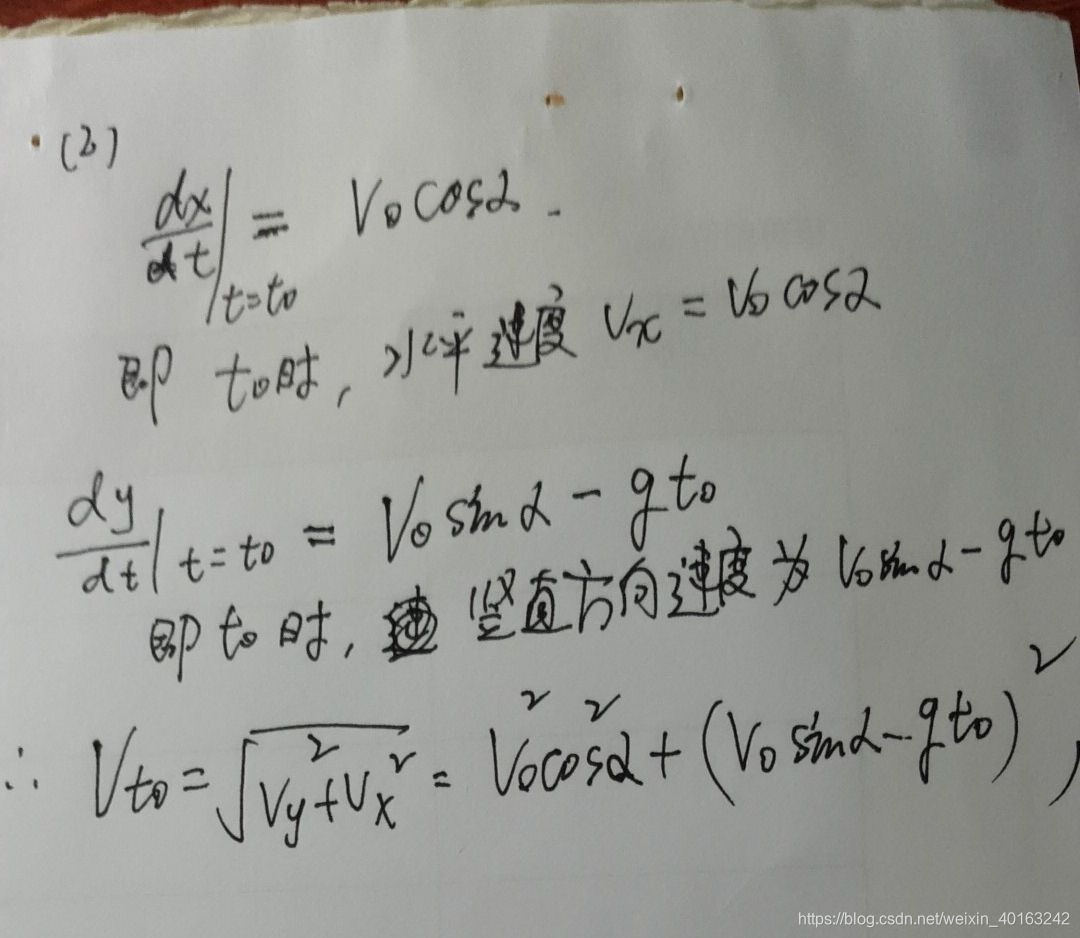 (2)
dx/dt|t=t₀ = V₀cosα.
即 t₀时, 水平速度 Vx = V₀cosα
dy/dt|t=t₀ = V₀sinα - gt₀
即 t₀ 时, 竖直方向速度为 V₀sinα - gt₀
∴ Vt₀ = √(Vy² + Vx²) = V₀²cos²α + (V₀sinα - gt₀)²,
https://blog.csdn.net/weixin_40163242